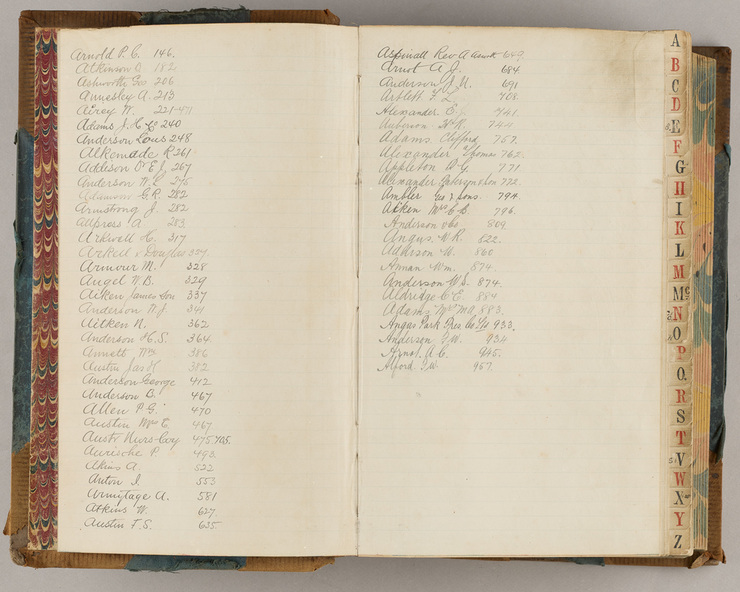 Arnold P. C. 146.
Atkinson D 182
Ashworth Geo 206
Annesley A. 213
Airey W. 221
Adams J. H. & Co 240
Anderson Louis 248
Alkemade R 261
Addison O. E. J. 267
Anderson W. E. 275
Adamson G. R. 282
Armstrong J. 282
Allpress A. 283
Arkwall H. 317
Arkell & Douglas 357
Armour M. 328
Angel W. B. 329
Aitken James Son 337
Anderson W. J. 341
Aitken N. 362
Anderson H. S. 364
Annett Wm 386
Austin Jas H. 382
Anderson George 412
Anderson B. 467
Allen P. G. 470
Austin Mrs E. 467
Austr Nurs. Coy 475.
P. 493.
Akins A. 522
Anton I. 553
Armytage A. 581
Atkins W. 627
Austin F. S. 635
Aspinall Rev A 649.
Arnot A J. 684.
Anderson J. M. 691
F. L. 708.
Alexander 741
Anderson 744
Adams Clifford. 757.
Alexander Thomas 762.
Appleton D. G. 771
Alexander & Son 772.
Ambler Geo & Sons. 794.
Aitken Mrs C. C. 796.
Anderson & Co 809.
Angus. W. R. 822.
Addison W. 860
Annan Wm. 874
Anderson W. S. 874.
Aldridge C. E. 884
Adams Mrs M. A. 883.
Angas Park Pres. Co Ltd 933.
Anderson J. W. 934
Arnot. A. C. 945.
Alford. J. W. 957.
A
B
C
D
E
F
G
H
I
K
L
M
Mc
N
O
P
Q.
R
S
T
V
W
X
Y
Z